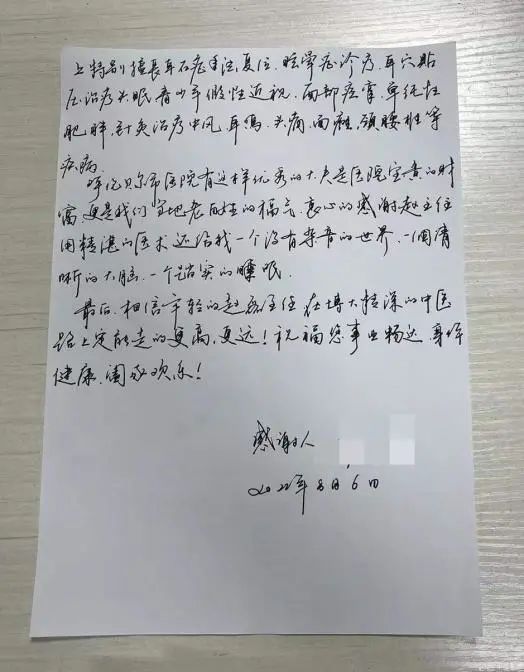 上特别擅长耳石症手法复位、眩晕症诊疗、耳穴贴
压治疗失眠青少年假性近视、面部痤疮、单纯性
肥胖，针灸治疗中风、耳鸣、头痛、面瘫、颈腰椎等
疾病
呼伦贝尔市医院有这样优秀的大夫是医院宝贵的财
富，更是我们当地老百姓的福气，衷心的感谢赵主任
用精湛的医术还给我一个没有杂音的世界、一個清
晰的大脑、一个踏实的睡眠。
最后，相信年轻的赵主任在博大精深的中医
路上定能走的更高，更远！祝福您事业畅达，身体
健康，阖家欢乐！
感谢人
2022年8月6日